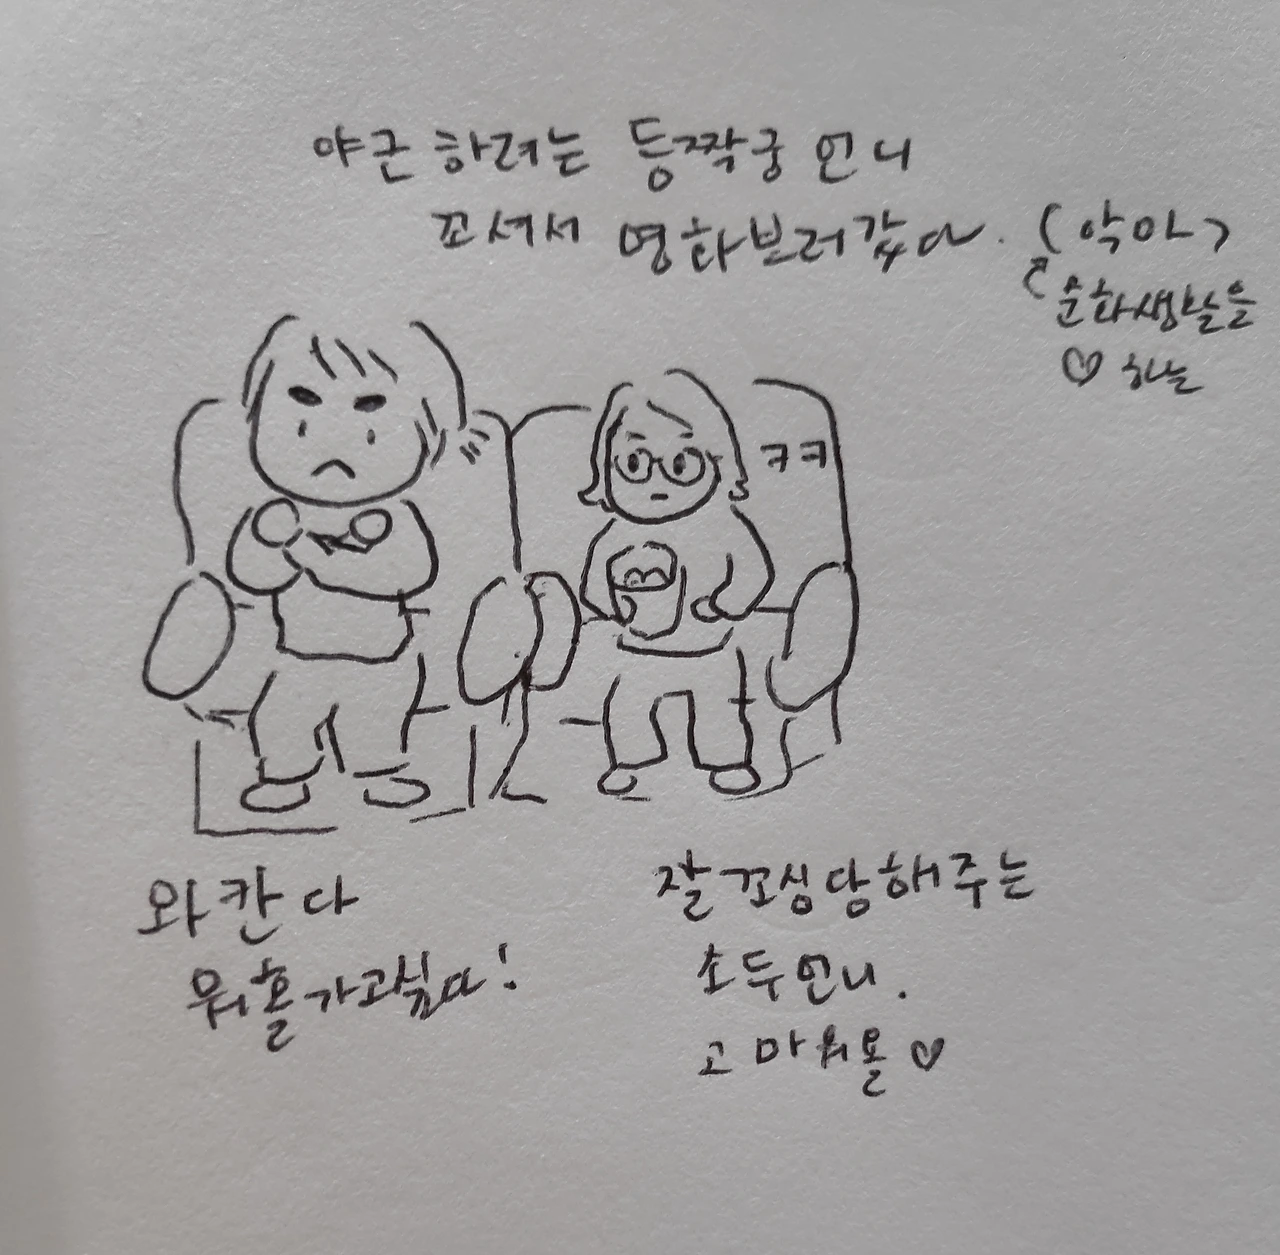 야근 하려는 등짝궁언니
꼬셔서 영화보러갔다. (악마)
문화생활을
♡ 하는
ㅋㅋ
와칸다
뭐홀가고싶다!
잘꼬심당해주는
소두언니.
고마워욜♡